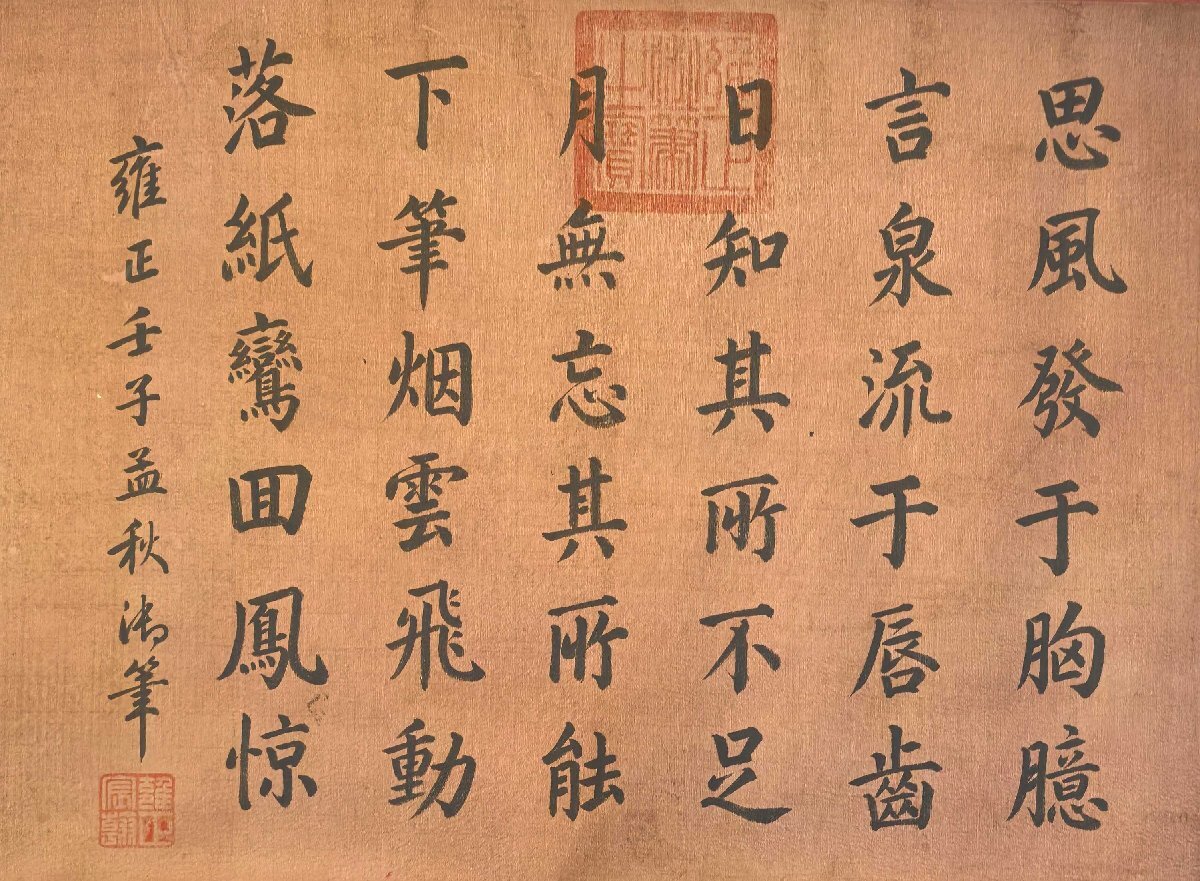 思風發于胸臆
言泉流于唇齒
日知其所不足
月無忘其所能
下筆烟雲飛動
落紙鸞回鳳惊
雍正壬子孟秋御筆
雍正御筆之寶
雍正宸翰